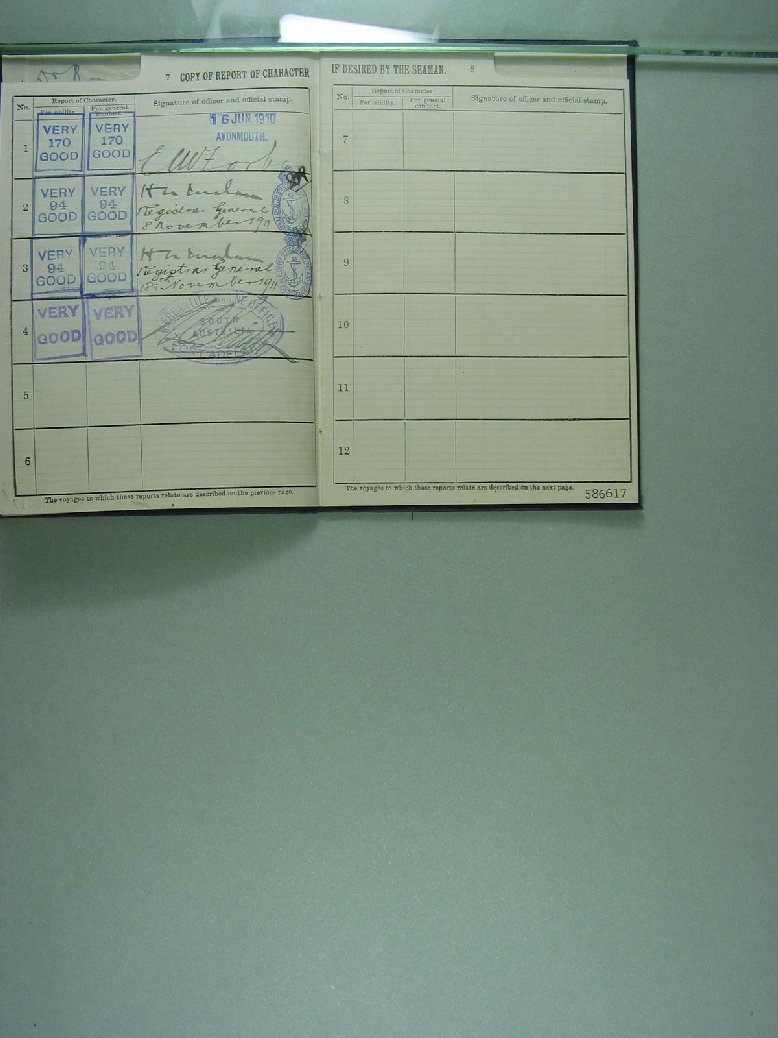 7 COPY OF REPORT OF CHARACTER
No.
Report of Character.
For ability.
For general conduct.
Signature of officer and official stamp.
1
VERY
170
GOOD
VERY
170
GOOD
16 JUN 1910
AVONMOUTH.
2
VERY
94
GOOD
VERY
94
GOOD
Registrar General
8 November 1911
3
VERY
94
GOOD
VERY
94
GOOD
Registrar General
18th November 1911
4
VERY
GOOD
VERY
GOOD
MERCANTILE MARINE OFFICE
SOUTH
AUSTRALIA
PORT ADELAIDE
5
6
The voyages to which these reports relate are described on the previous page.
IF DESIRED BY THE SEAMAN. 8
No.
Report of Character
For ability.
For general conduct.
Signature of officer and official stamp.
7
8
9
10
11
12
The voyages to which these reports relate are described on the next page.
586617